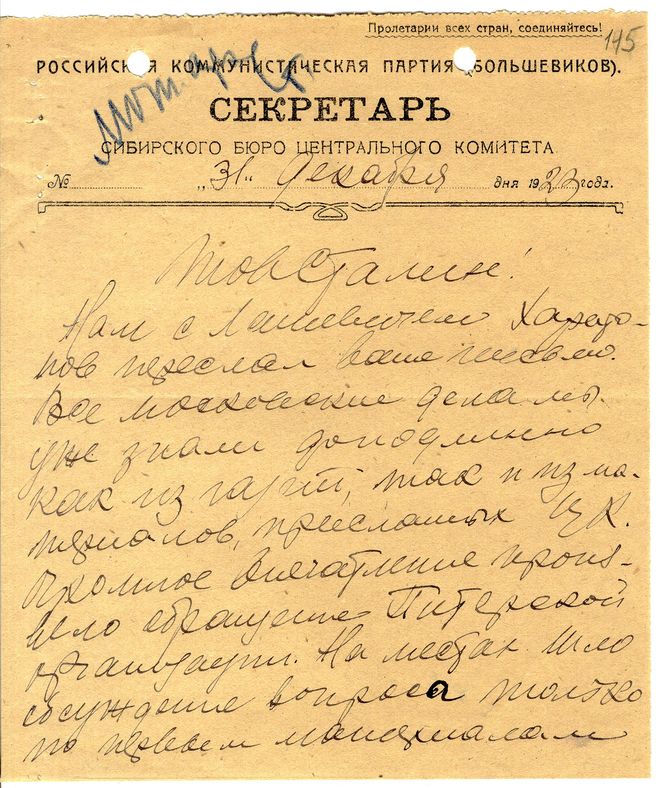 Пролетарии всех стран, соединяйтесь!
145
РОССИЙСКАЯ КОММУНИСТИЧЕСКАЯ ПАРТИЯ (БОЛЬШЕВИКОВ).
СЕКРЕТАРЬ
СИБИРСКОГО БЮРО ЦЕНТРАЛЬНОГО КОМИТЕТА
№ „31" Декабря дня 1923 года.
Тов Сталин!
Нам с Лашевичем Харито-
нов переслал ваше письмо.
Все московские дела мы
уже знали доподлинно
как из газет, так и из ма-
териалов, присланых ЦК.
Громадное впечатление произ-
вело обращение Питерской
организации. На местах шло
обсуждение вопроса только
по первым материалам